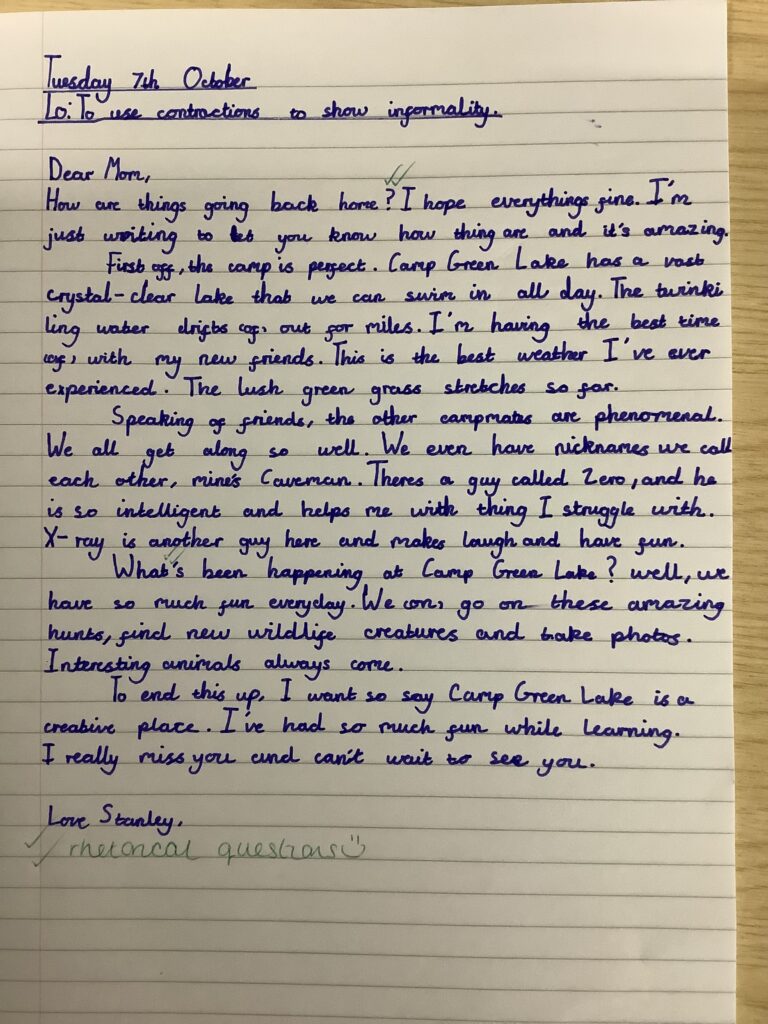 Tuesday 7th October
Lo: To use contractions to show informality.
Dear Mom,
How are things going back home? I hope everythings fine. I'm
just writing to let you know how thing are and it's amazing.
First off, the camp is perfect. Camp Green Lake has a vast
crystal-clear lake that we can swim in all day. The twinkl
ling water drifts out for miles. I'm having the best time
with my new friends. This is the best weather I've ever
experienced. The lush green grass stretches so far.
Speaking of friends, the other campmates are phenomenal.
We all get along so well. We even have nicknames we call
each other, mine's Caveman. Theres a guy called Zero, and he
is so intelligent and helps me with thing I struggle with.
X-ray is another guy here and makes laugh and have fun.
What's been happening at Camp Green Lake? well, we
have so much fun everyday. We go on these amazing
hunts, find new wildlife creatures and take photos.
Interesting animals always come.
To end this up, I want so say Camp Green Lake is a
creative place. I've had so much fun while learning.
I really miss you and can't wait to see you.
Love Stanley.
rhetorical questions